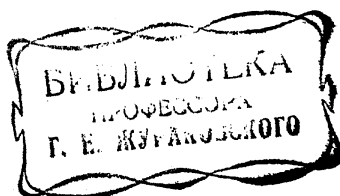 БИБЛИОТЕКА
ПРОФЕССОРА
Г. Е. ЖУРАКОВСКОГО